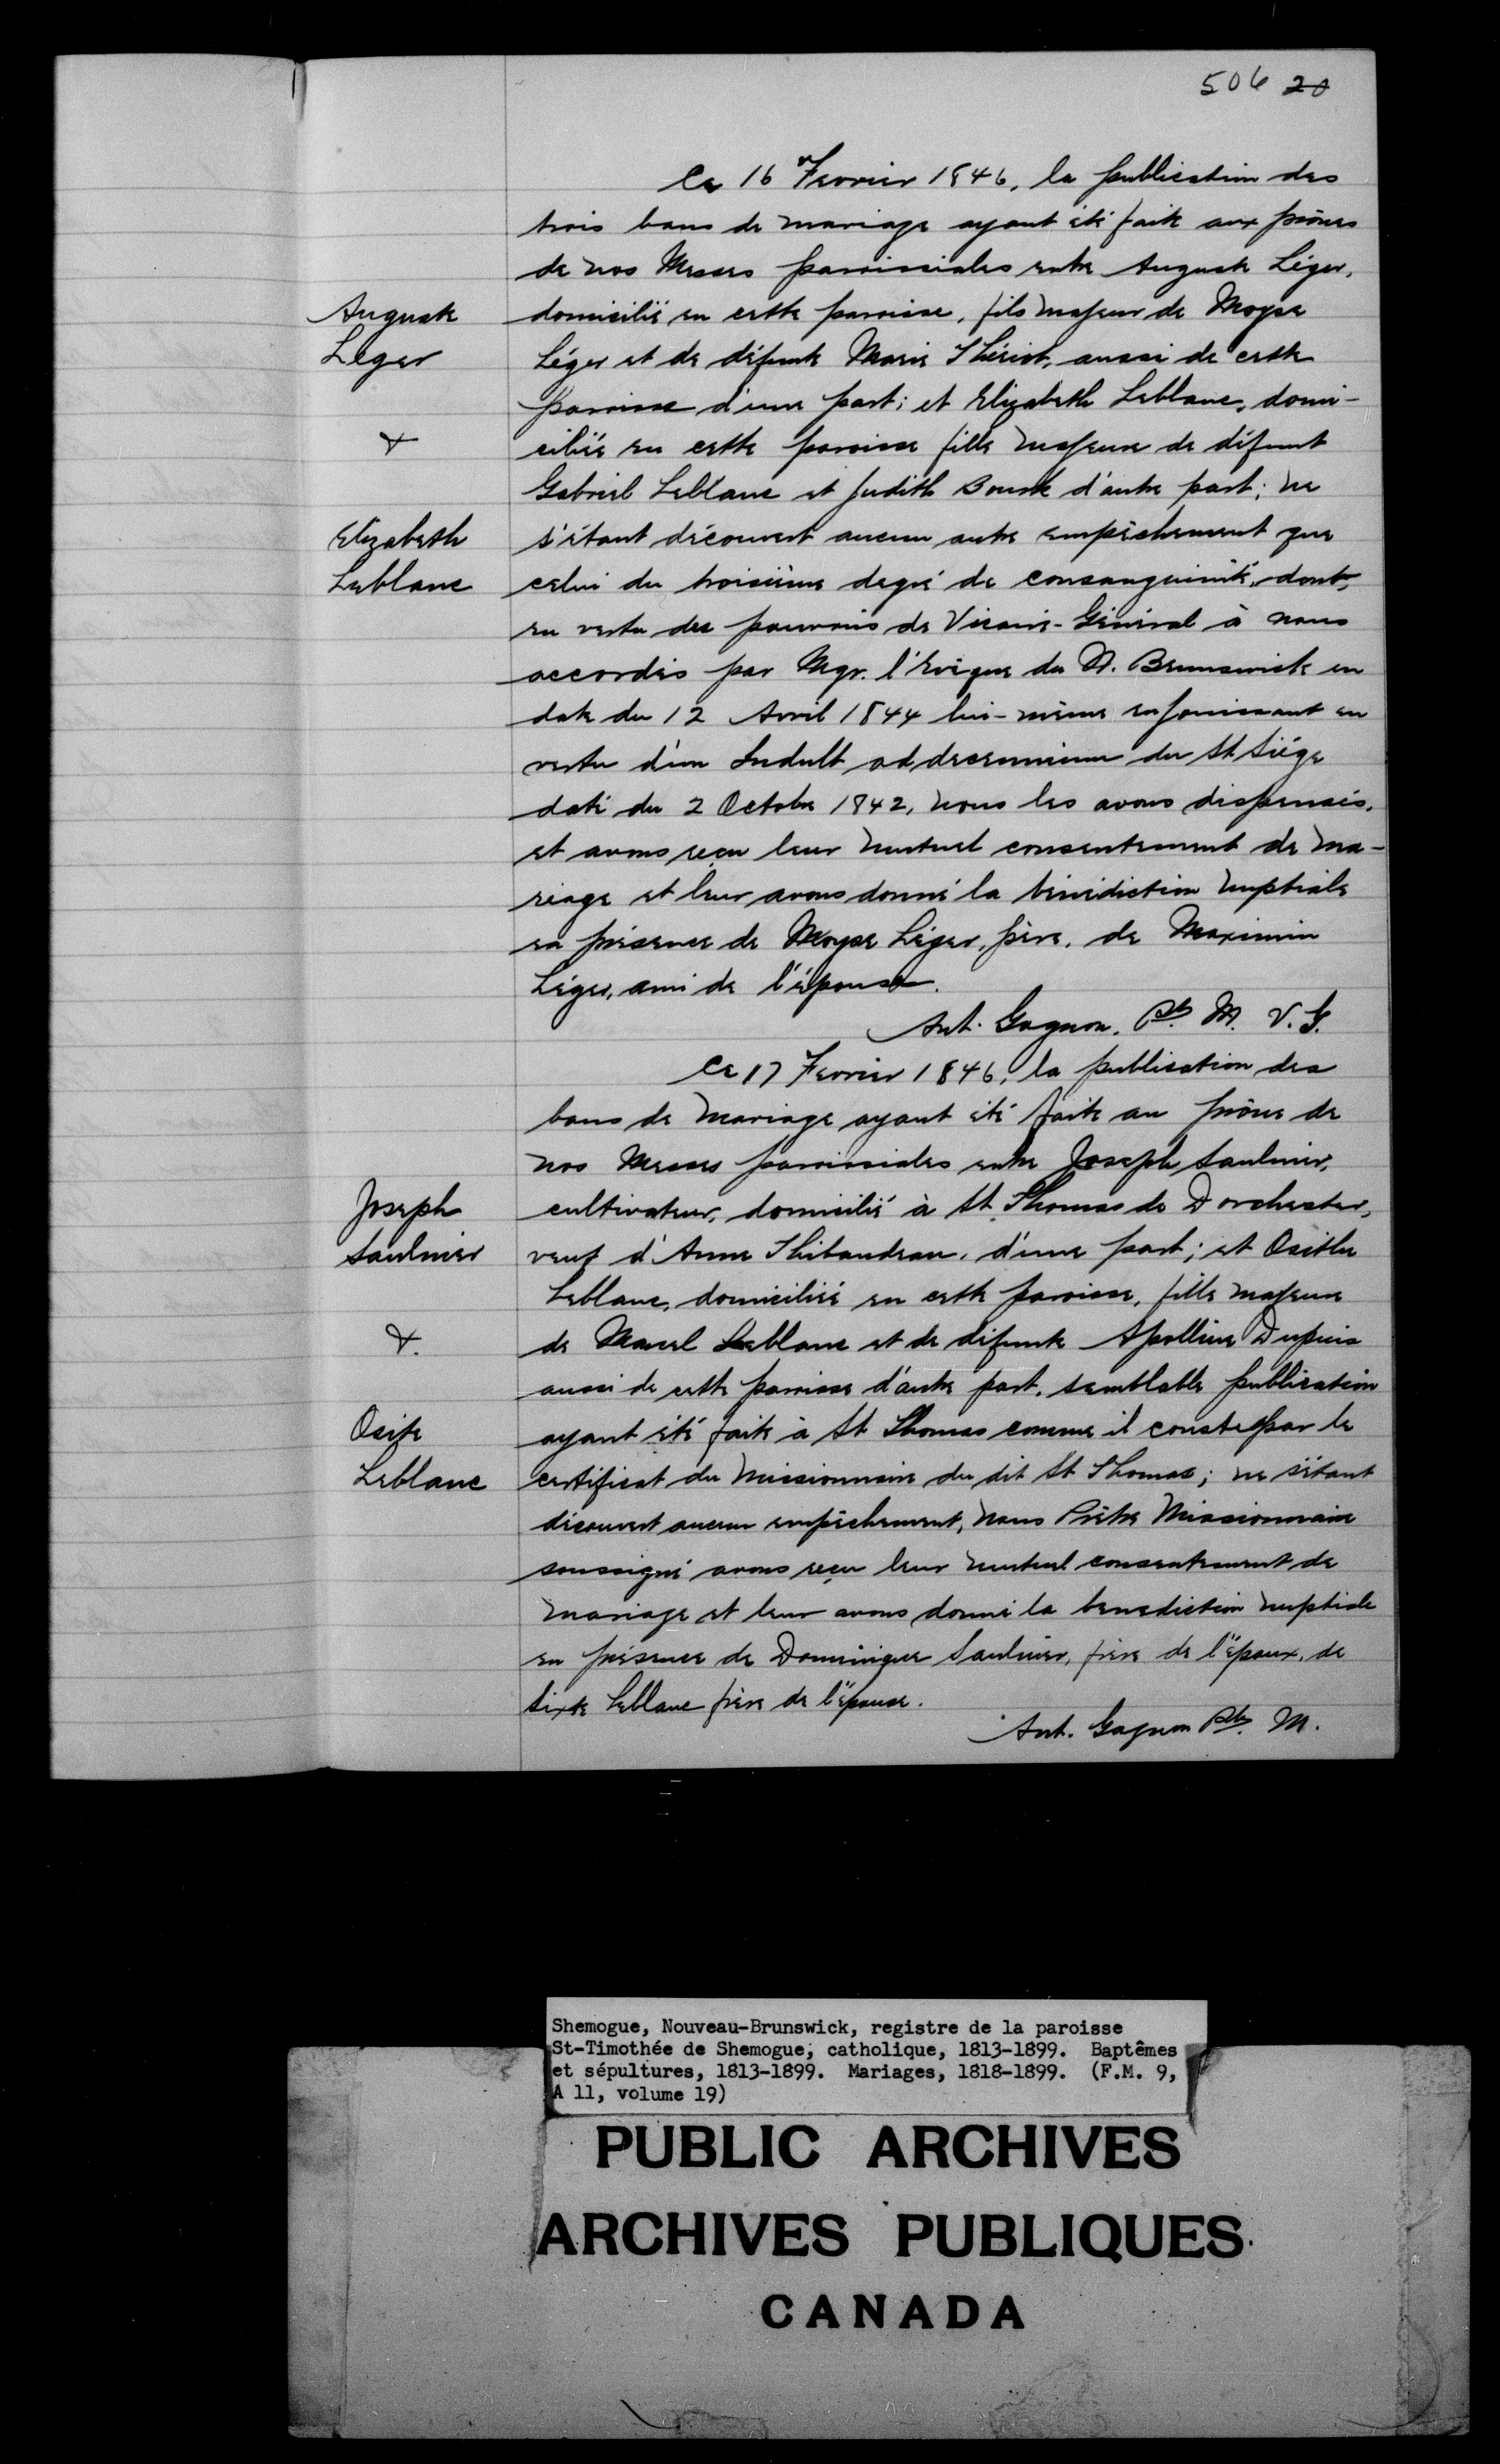 506 20
Ce 16 Fevrier 1846, la publication des
trois bans de mariage ayant été faite aux prônes
de nos Messes paroissiales entre Auguste Léger,
domicilié en cette paroisse, fils majeur de Moyse
Léger et de défunte Marie Thériot, aussi de cette
paroisse d'une part; et Elizabeth Leblanc, domi-
ciliée en cette paroisse fille majeure de défunt
Gabriel Leblanc et Judith Bourk d'autre part; ne
s'étant découvert aucun autre empêchement que
celui du troisième degré de consanguinité, dont,
en vertu des pouvoirs de Vicaire-Général à nous
accordés par Mgr. l'Evêque du N. Brunswick en
date du 12 Avril 1844 lui-même en jouissant en
vertu d'un Indult ad decennium du St Siége
daté du 2 Octobre 1842, nous les avons dispensés,
et avons reçu leur mutuel consentement de ma-
riage et leur avons donné la bénédiction nuptiale
en présence de Moyse Léger, père, de Maximin
Léger, ami de l'épouse.
Ant. Gagnon, Ptr. M. V. G.
Auguste
Léger
&
Elizabeth
Leblanc
Ce 17 Fevrier 1846, la publication des
bans de mariage ayant été faite au prône de
nos Messes paroissiales entre Joseph Saulnier,
cultivateur, domicilié à St Thomas de Dorchester,
veuf d'Anne Thibaudeau, d'une part; et Osithe
Leblanc, domiciliée en cette paroisse, fille majeure
de Marcel Leblanc et de défunte Apolline Dupuis
aussi de cette paroisse d'autre part, semblable publication
ayant été faite à St Thomas comme il conste par le
certificat du Missionnaire du dit St Thomas; ne s'étant
découvert aucun empêchement, nous Prêtre Missionnaire
soussigné avons reçu leur mutuel consentement de
mariage et leur avons donné la benediction nuptiale
en présence de Dominique Saulnier, frère de l'époux, de
Sixte Leblanc frère de l'épouse.
Ant. Gagnon Ptr. M.
Joseph
Saulnier
&
Osite
Leblanc
Shemogue, Nouveau-Brunswick, registre de la paroisse
St-Timothée de Shemogue, catholique, 1813-1899. Baptêmes
et sépultures, 1813-1899. Mariages, 1818-1899. (F.M. 9,
A 11, volume 19)
PUBLIC ARCHIVES
ARCHIVES PUBLIQUES
CANADA